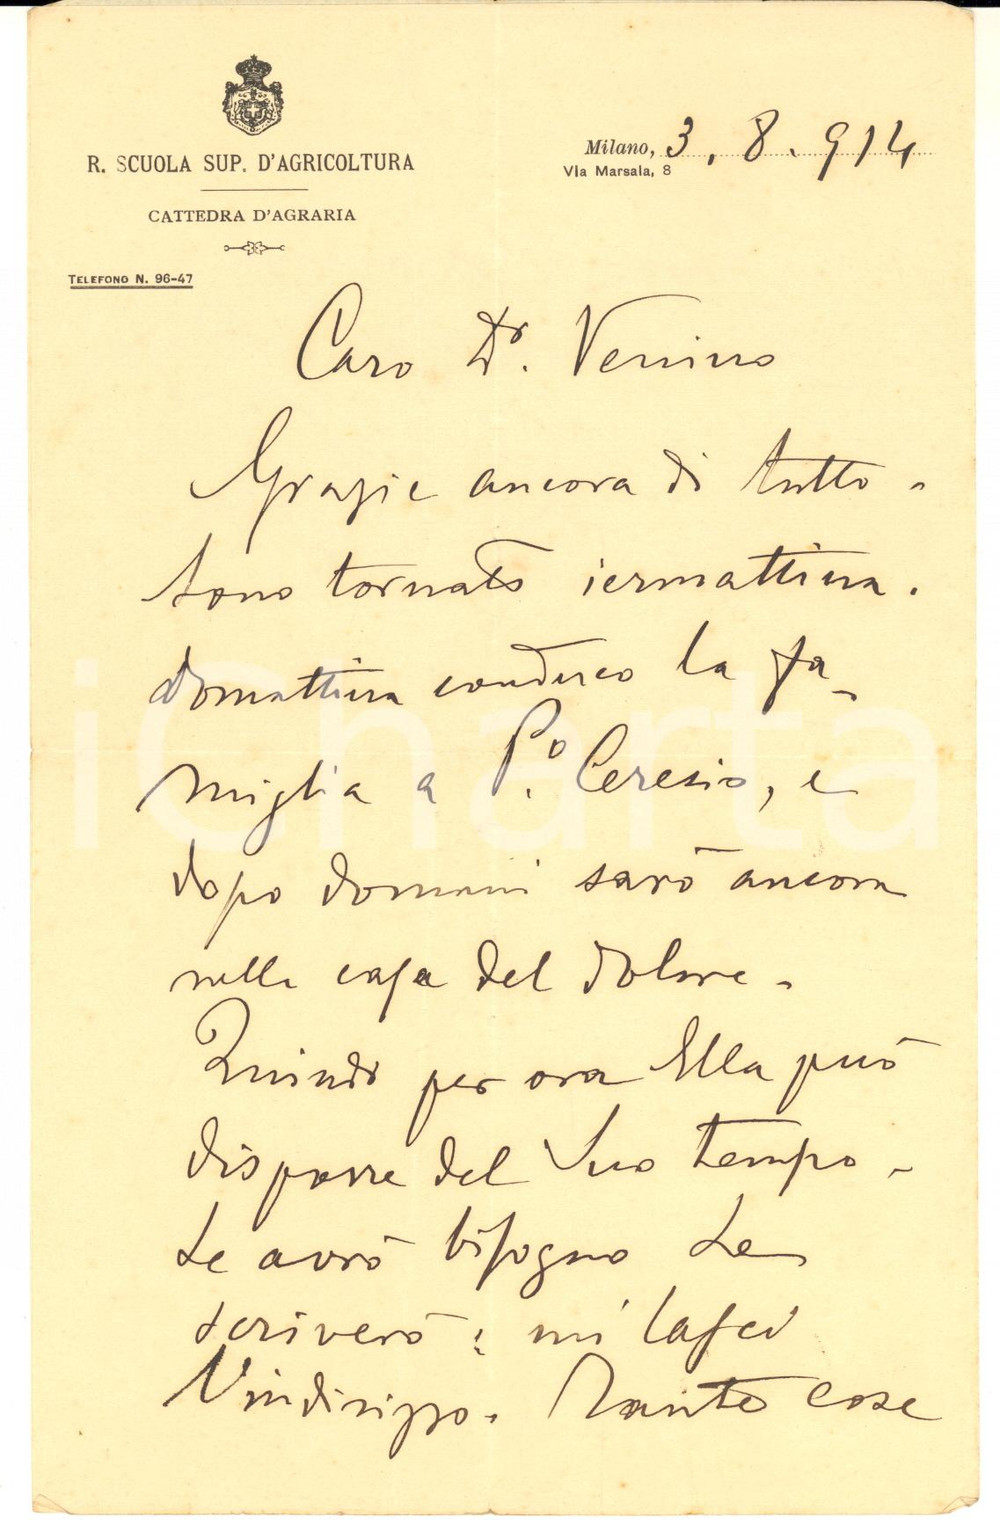 R. SCUOLA SUP. D'AGRICOLTURA
CATTEDRA D'AGRARIA
TELEFONO N. 96-47
Milano, 3. 8. 914
Via Marsala, 8
Caro Dr. Vennino
Grazie ancora di tutto -
Sono tornato iermattina.
Domattina conduco la fa-
miglia a P.º Ceresio, e
dopo domani sarò ancora
nella casa del dolore -
Quindi per ora Ella può
disporre del Suo tempo -
Se avrò bisogno Le
scriverò; mi lasci
l'indirizzo. Tante cose
iCharta